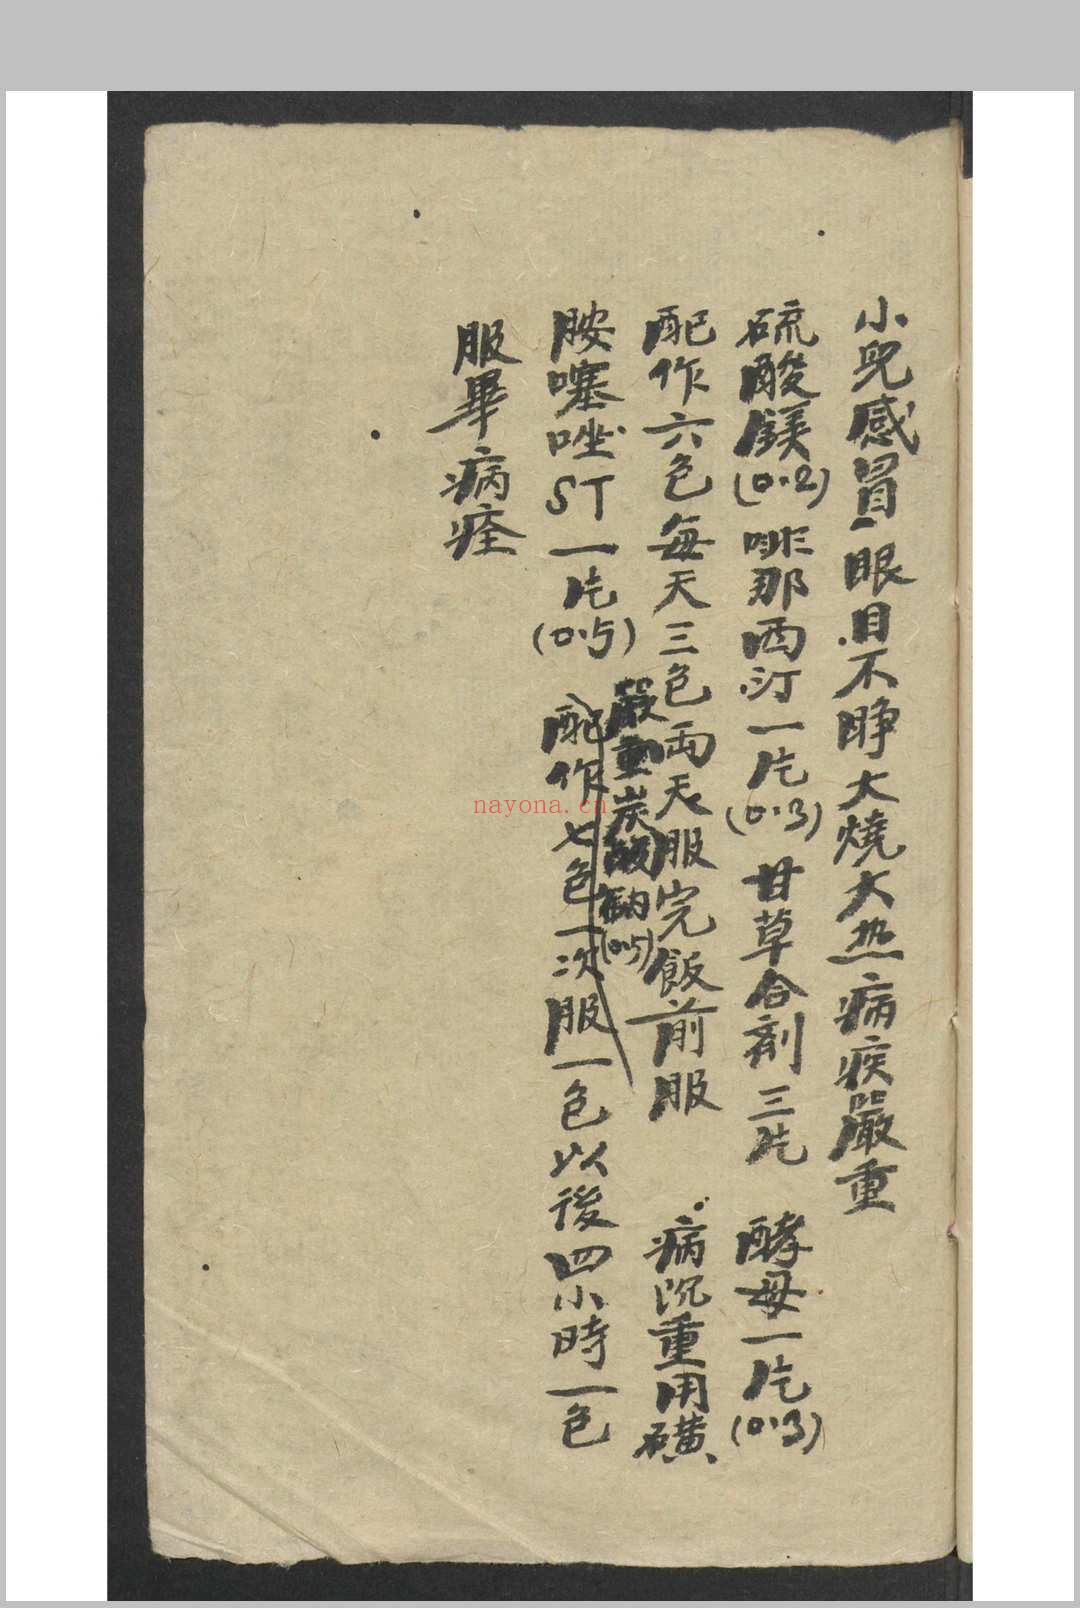 小兒感冒眼目不睁大燒大热病疾嚴重
硫酸鎂(0.2)啡那西汀一片(0.3)甘草合剂三片 酵母一片(0.3)
配作六包每天三包両天服完飯前服 病沉重用磺
嚴重炭酸钠(0.5)
胺噻唑ST一片(0.5) 配作七包一次服一包以後四小時一包
服畢病痊
nayona.cn